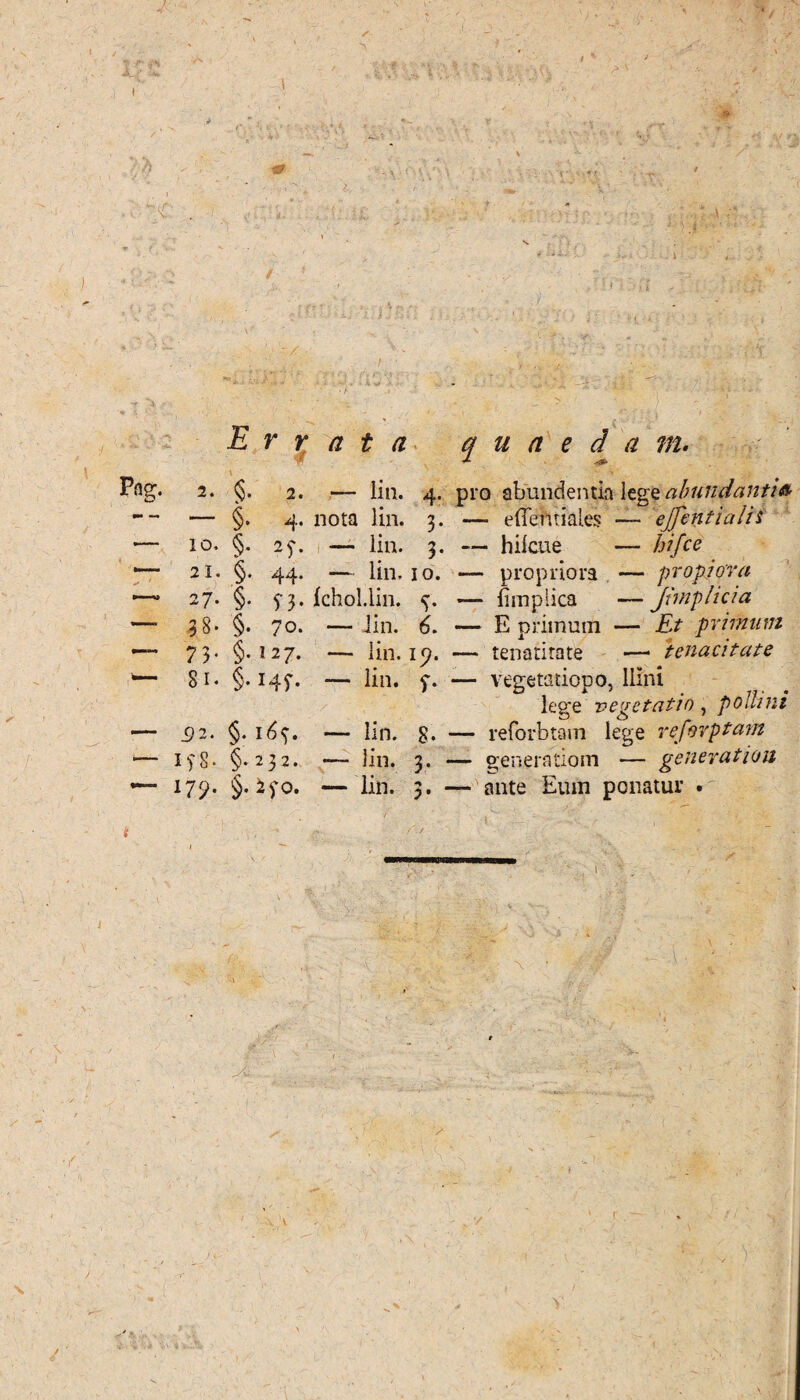 Errata quaedam.
Pag. 2. §. 2. — lin. 4. pro abundentia lege abundantia
-- — §. 4. nota lin. 3. — eſſentiales — eſſentialis
— 10. §. 25. — lin. 3. — hiſcue — hiſce
— 21. §. 44. — lin. 10. — propriora — propiora
— 27. §. 53. ſchol.lin. 5. — ſimplica — ſimplicia
— 38. §. 70. — lin. 6. — E primum — Et primum
— 73. §. 127. — lin. 19. — tenatitate — tenacitate
— 81. §. 145. — lin. 5. — vegetatiopo, llini
lege vegetatio, pollini
— 92. §. 165. — lin. 8. — reſorbtam lege reſorptam
— 158. §. 232. — lin. 3. — generatiom — generation
— 179. §. 250. — lin. 3. — ante Eum ponatur •